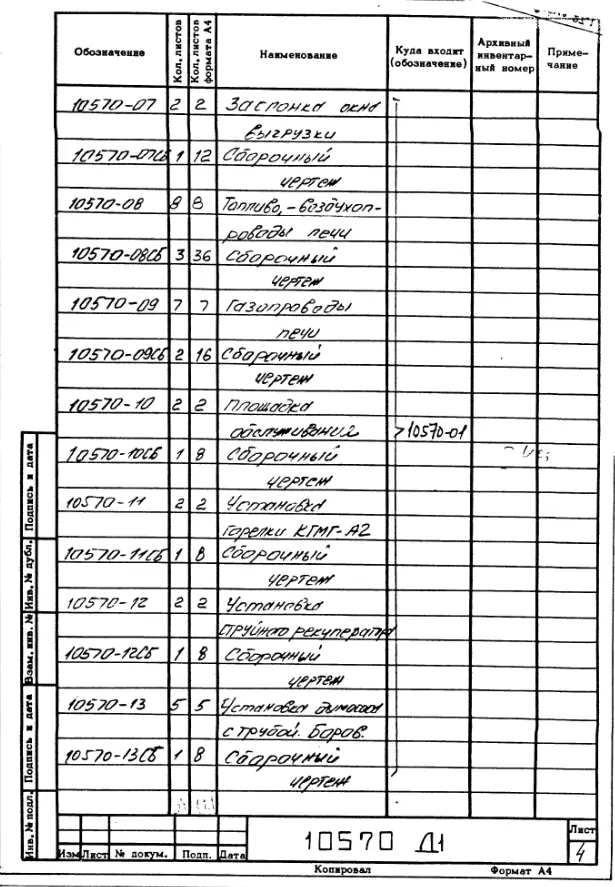 Обозначение Кол. листов Кол. листов формата А4 Наименование Куда входит (обозначение) Архивный инвентар- ный номер Приме- чание
10570-07 2 2 Заслонка окна
выгрузки
10570-07СБ 1 12 Сборочный
чертеж
10570-08 8 8 Топливо,-воздухоп-
роводы печи
10570-08СБ 3 36 Сборочный
чертеж
10570-09 7 7 Газопроводы
печи
10570-09СБ 2 16 Сборочный
чертеж
10570-10 2 2 Площадка
обслуживания 10570-01
10570-10СБ 1 8 Сборочный
чертеж
10570-11 2 2 Установка
горелки КГМГ-А2
10570-11СБ 1 8 Сборочный
чертеж
10570-12 2 2 Установка
струйного рекуператора
10570-12СБ 1 8 Сборочный
чертеж
10570-13 5 5 Установка дымососа
с трубой. Боров.
10570-13СБ 1 8 Сборочный
чертеж
Подпись и дата
Инв. № дубл.
Взам. инв. №
Подпись и дата
Инв. № подл.
Изм Лист № докум. Подп. Дата
10570 Д1
Лист
4
Копировал Формат А4